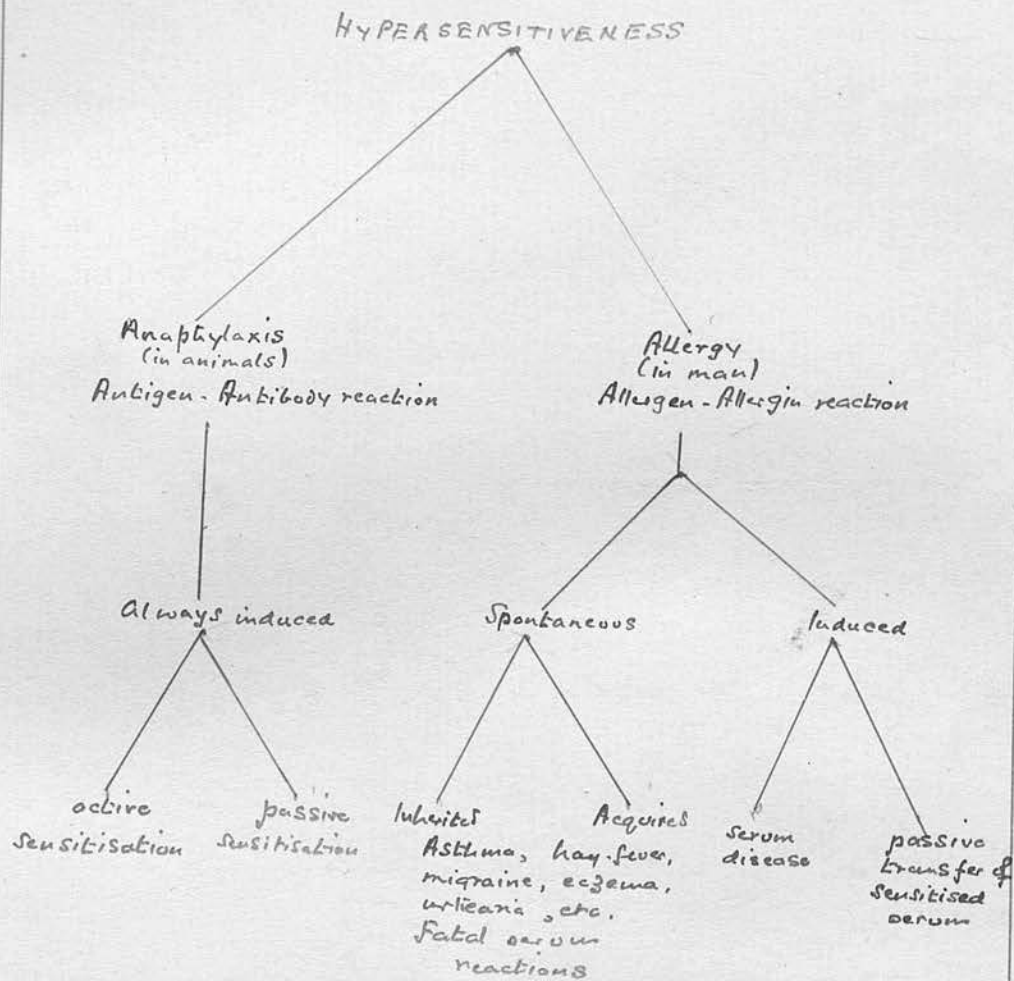 HYPERSENSITIVENESS
Anaphylaxis
(in animals)
Antigen - Antibody reaction
Allergy
(in man)
Allergen - Allergin reaction
Always induced
Spontaneous
Induced
active
sensitisation
passive
sensitisation
Inherited
Acquired
Asthma, hay-fever,
migraine, eczema,
urticaria, etc.
Fatal serum
reactions
serum
disease
passive
transfer of
sensitised
serum